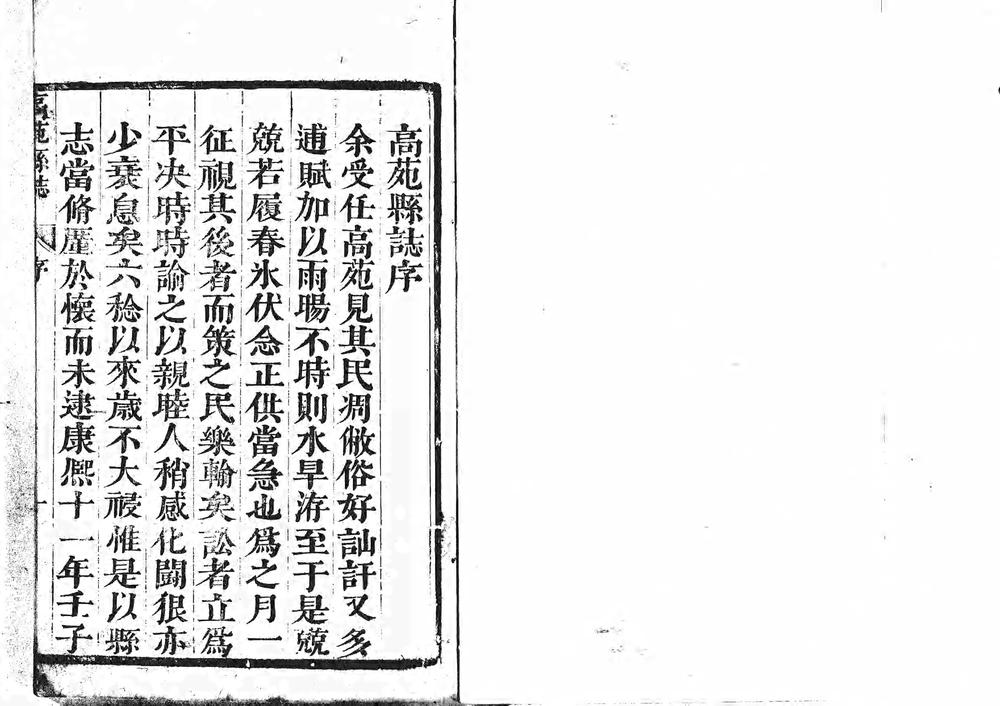 高苑縣誌序
余受任高苑見其民凋敝俗好訕訐又多
逋賦加以雨暘不時則水旱洊至于是兢
兢若履春氷伏念正供當急也爲之月一
征視其後者而策之民樂輸矣訟者立爲
平决時時諭之以親睦人稍感化鬪狠亦
少衰息矣六稔以來歲不大祲惟是以縣
志當脩歴於懷而未逮康熈十一年壬子
高苑縣誌 序 一